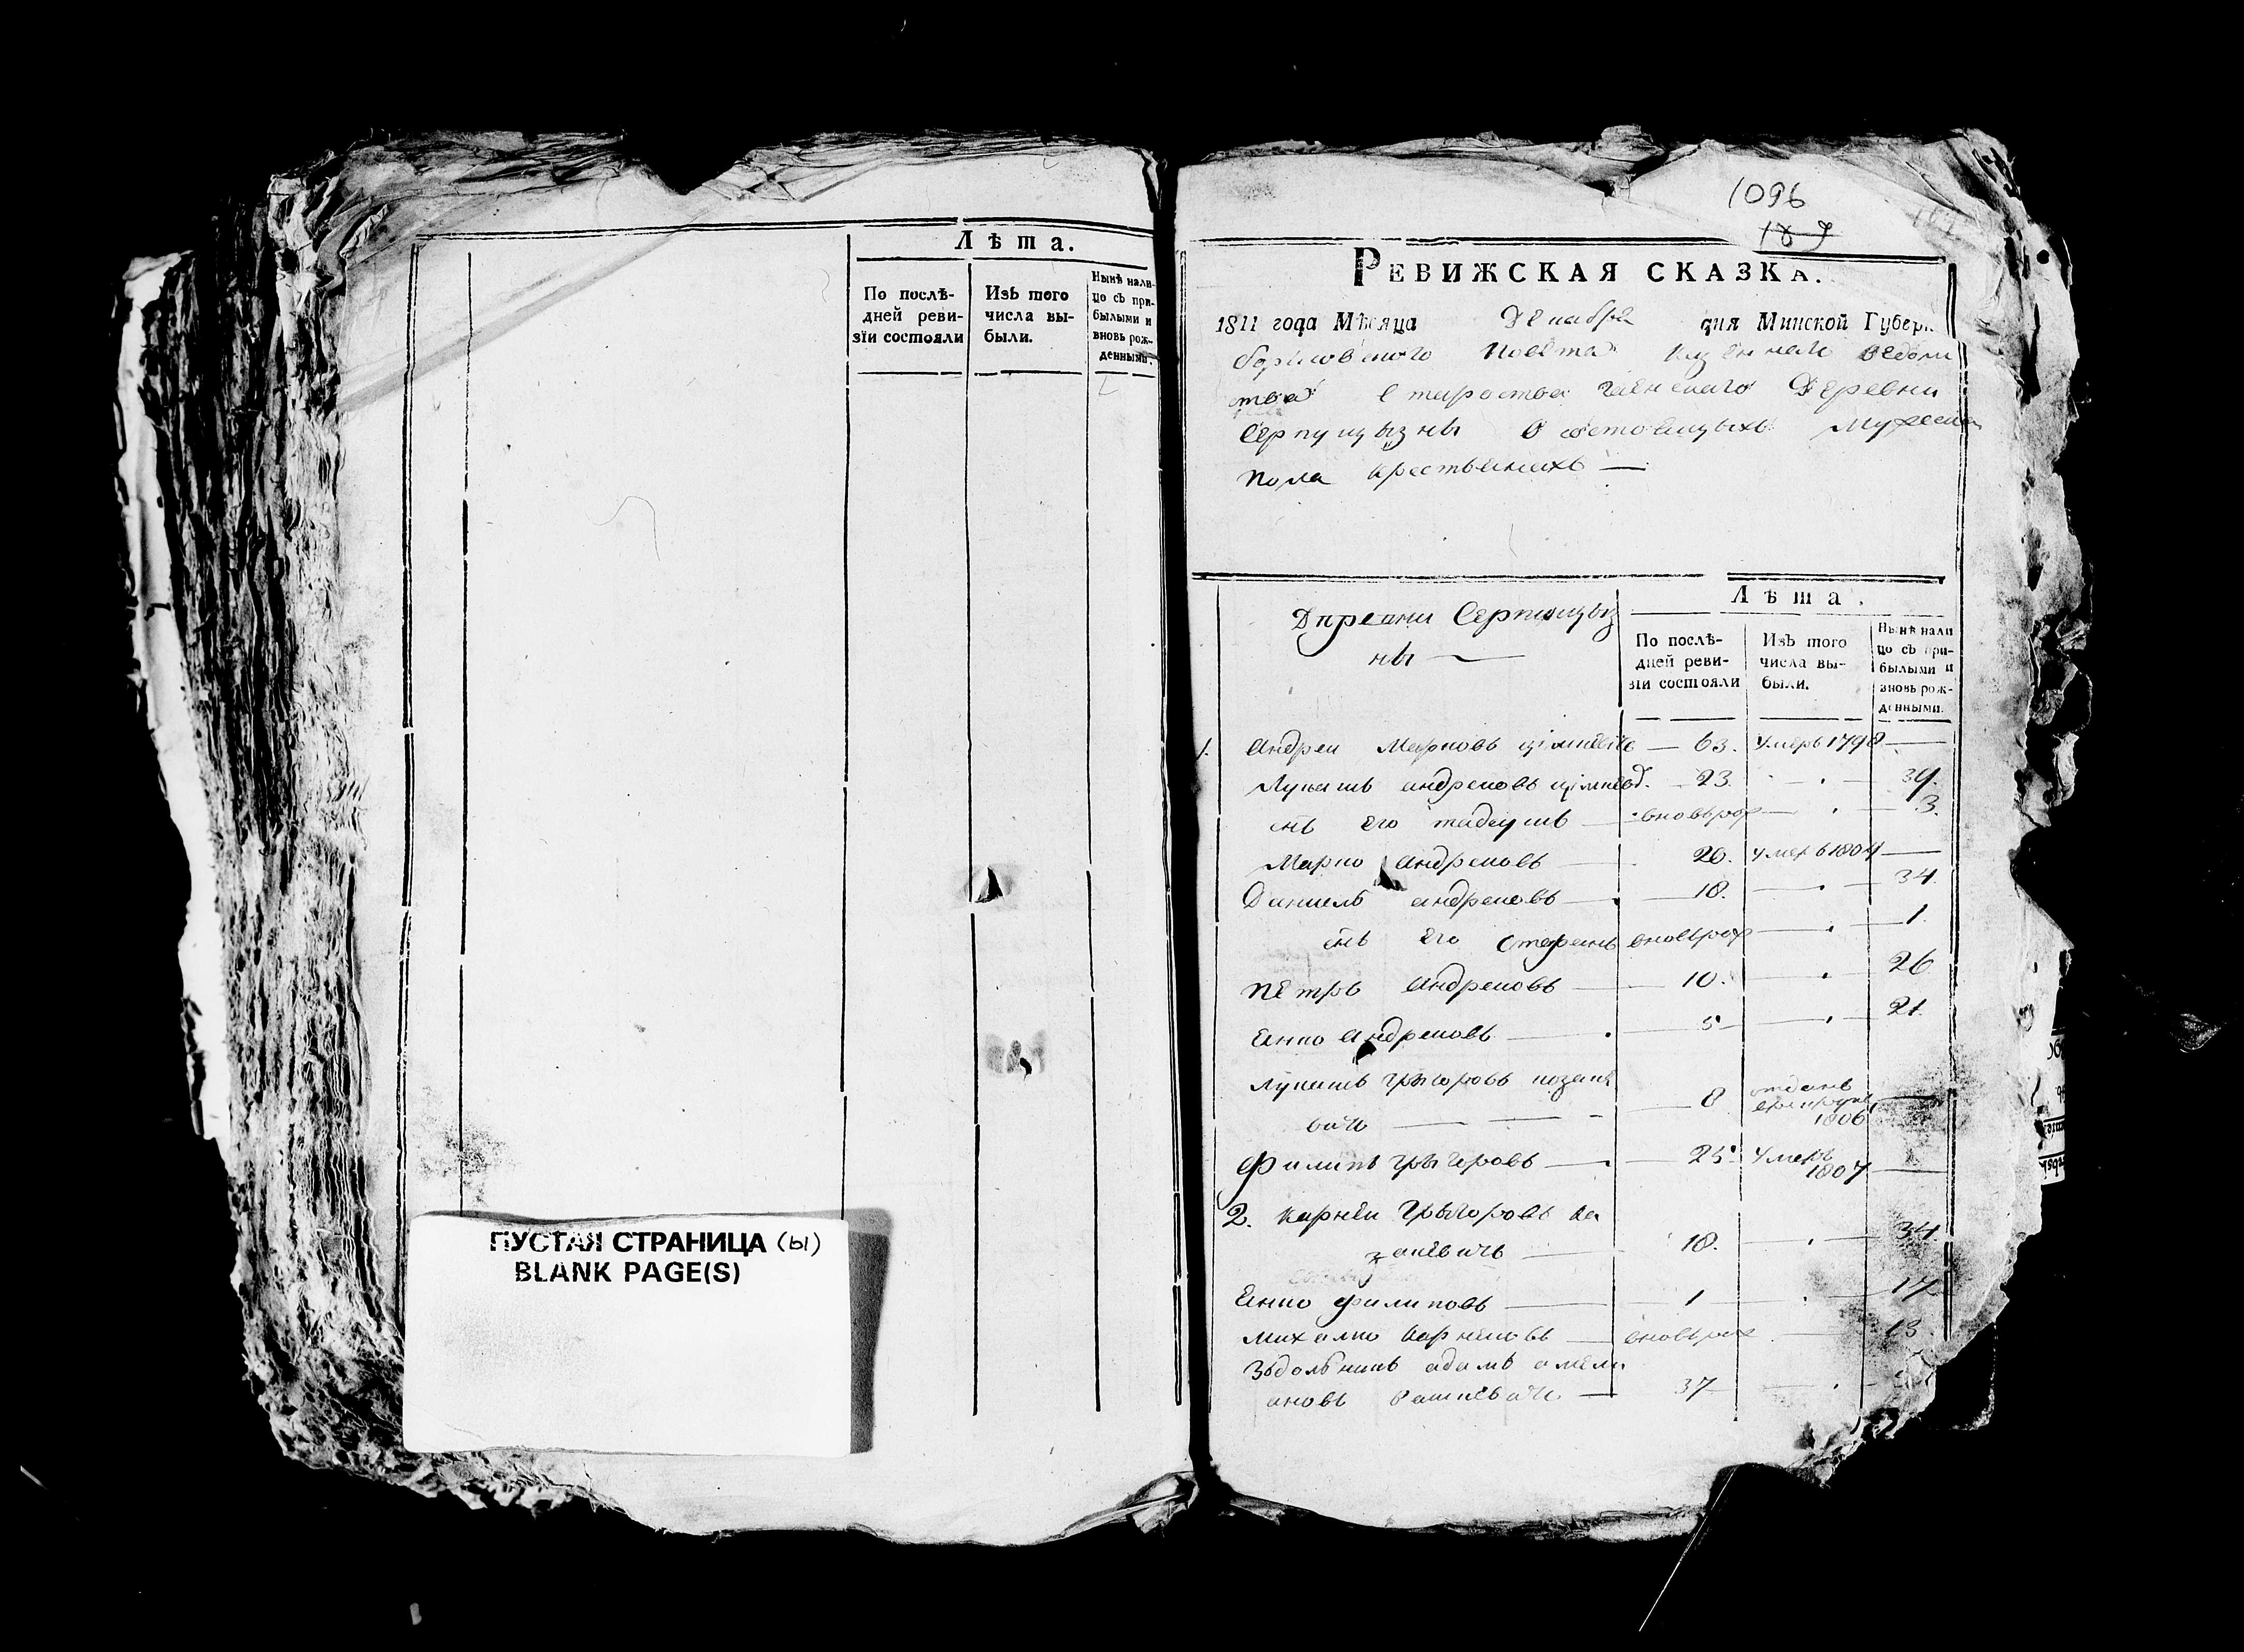 Лѣта.
По послѣ-
дней реви-
зїи состояли
Изъ того
числа вы-
были.
Нынѣ нали-
цо съ при-
былыми и
вновь рож-
денными.
ПУСТАЯ СТРАНИЦА (ы)
BLANK PAGE(S)
1096
189
РЕВИЖСКАЯ СКАЗКА.
1811 года Мѣсяца Декабря дня Минской Губерн
борисовскаго повѣта казеннаго ведом
ства староства гаенскаго Деревни
Серпуцызны О состоящихъ мужеска
пола крестьянехъ —
Деревни Серпуцыз
ны —
Лѣта.
По послѣ-
дней реви-
зїи состояли
Изъ того
числа вы-
были.
Нынѣ нали
цо съ при-
былыми и
вновь рож-
денными.
1. Андреи Марковъ — 63. Умеръ 1798 —
Лукашъ андреовъ 23. — 39.
снъ его тадеушъ — вновьрож — 3.
Марко Андреовъ — 20. умеръ 1804 —
Даниель андреовъ — 18. — 34.
снъ его Стефанъ вновьрож — 1.
Петръ Андреовъ — 10. — 26
Янко Андреовъ — 5 — 21.
Лукашъ грыгоровъ козаке
вичъ — 8 отданъ
1806 —
Филипъ грыгоровъ — 25 Умеръ
1807 —
2. Карнеи Грыгоровъ ка
закевичъ — 18. — 34.
Янко филиповъ — 1 — 17
михалко Карнеовъ — вновьрож — 13
адамъ амели
ановъ — 37 —